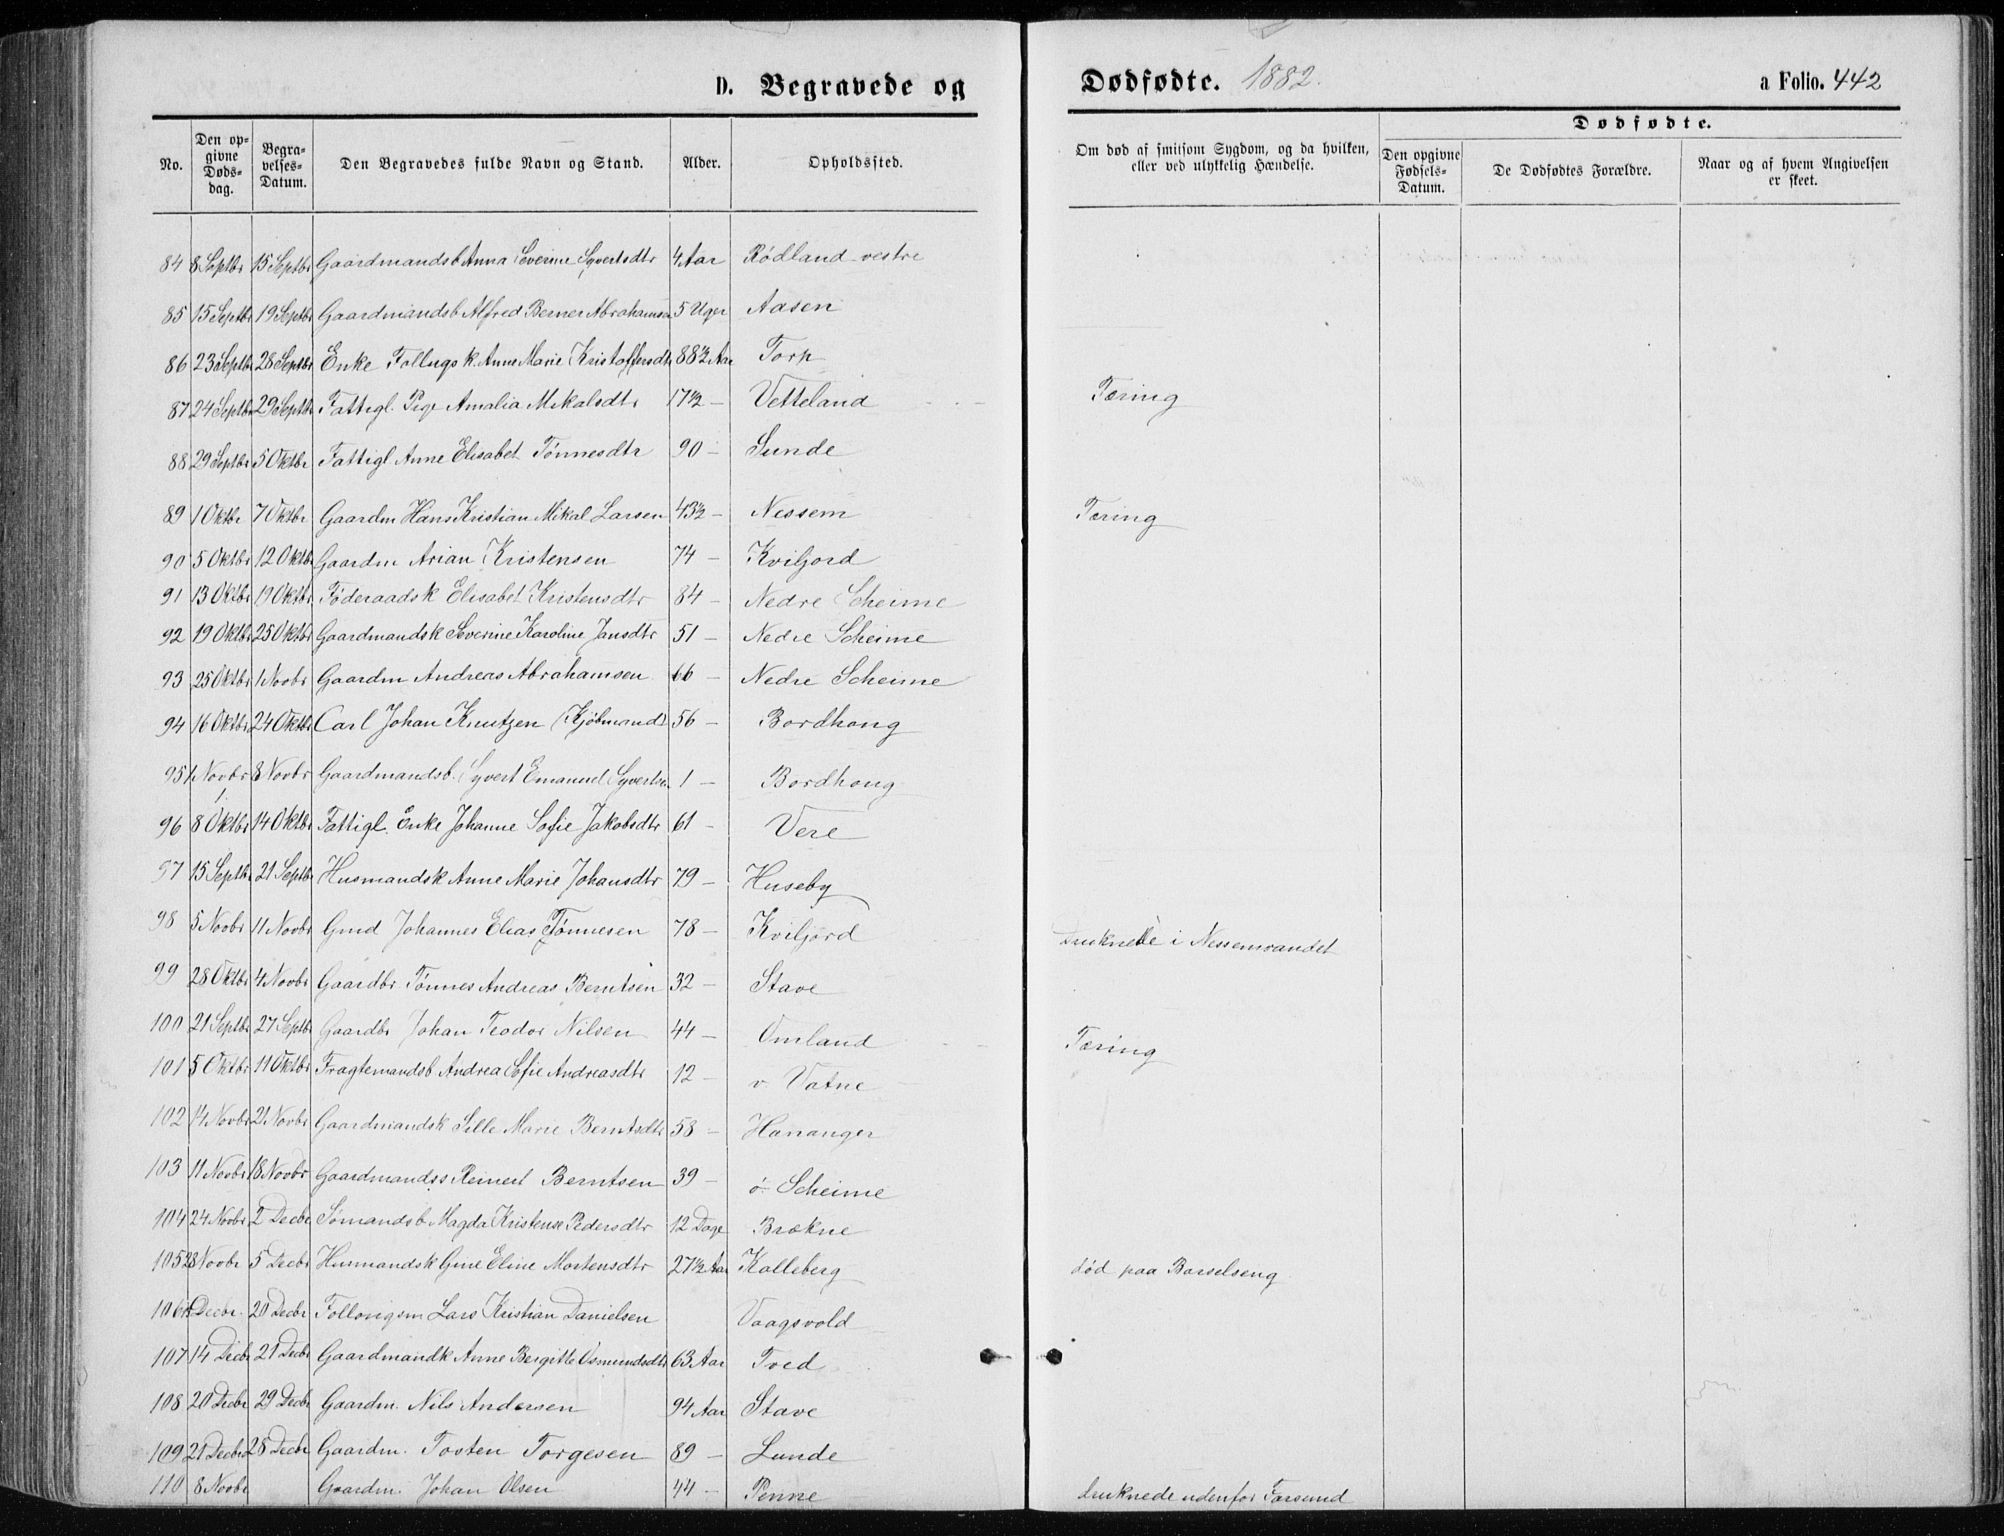 D. Begravede og Dødfødte. 1882. a Folio. 442
No. Den opgivne Dødsdag. Begravelses-Datum. Den Begravedes fulde Navn og Stand. Alder. Opholdssted. Om død af smitsom Sygdom, og da hvilken, eller ved ulykkelig Hændelse. Dødfødte. Den opgivne Fødsels-Datum. De Dødfødtes Forældre. Naar og af hvem Angivelsen er skeet.
84 8 Septbr 15 Septbr Gaardmandsb Anna Severine Syvertsdtr 4 Aar Rødland vestre
85 15 Septbr 19 Septbr Gaardmandsb Alfred Berner Abrahamsen 5 Uger Aasen
86 23 Septbr 28 Septbr Enke Follugsk. Anne Marie Kristoffersdtr 88½ Aar Torp
87 24 Septbr 29 Septbr Fattigl. Pige Amalia Mikalsdtr 17½ — Vetteland Tæring
88 29 Septbr 5 Oktbr Fattigl. Anne Elisabet Tønnesdtr 90 — Sunde
89 1 Oktbr 7 Oktbr Gaardm Hans Kristian Mikal Larsen 43½ — Nessem Tæring
90 5 Oktbr 12 Oktbr Gaardm Arian Kristensen 74 — Kviljord
91 13 Oktbr 19 Oktbr Føderaadsk Elisabet Kristensdtr 84 — Nedre Scheime
92 19 Oktbr 25 Oktbr Gaardmandsk Severine Karoline Jansdtr 51 — Nedre Scheime
93 25 Oktbr 1 Novbr Gaardm Andreas Abrahamsen 66 — Nedre Scheime
94 16 Oktbr 24 Oktbr Carl Johan Knutzen (Kjøbmand) 56 — Bordhoug
95 1 Novbr 8 Novbr Gaardmandsb. Syvert Emanuel Syvertsen 1 — Bordhoug
96 8 Oktbr 14 Oktbr Fattigl. Enke Johanne Sofie Jakobsdtr 61 — Vere
97 15 Septbr 21 Septbr Husmandsk Anne Marie Johansdtr 79 — Huseby
98 5 Novbr 11 Novbr Gmd Johannes Elias Tønnesen 78 — Kviljord druknede i Nessemvandet
99 28 Oktbr 4 Novbr Gaardbr. Tønnes Andreas Berntsen 32 — Stave
100 21 Septbr 27 Septbr Gaardbr Johan Teodor Nilsen 44 — Omland Tæring
101 5 Oktbr 11 Oktbr Fragtemandsb Andrea Sofie Andreasdtr 12 — v. Vatne
102 14 Novbr 21 Novbr Gaardmandsk Sille Marie Berntsdtr 58 — Hananger
103 11 Novbr 18 Novbr Gaardmandss Reinert Berntsen 39 — ø. Scheime
104 24 Novbr 2 Decbr Sømandsb Magda Kristense Pedersdtr 12 Dage Brækne
105 28 Novbr 5 Decbr Husmandsk Gine Eline Mortensdtr 27½ Aar Kalleberg død paa Barselseng
106 Decbr. 20 Decbr Follougsm Lars Kristian Danielsen Vaagsvold
107 14 Decbr 21 Decbr Gaardmandk Anne Bergitte Osmundsdtr 63 Aar Tved
108 20 Decbr 29 Decbr Gaardm. Nils Andersen 94 Aar Stave
109 21 Decbr 28 Decbr Gaardm. Tosten Torgesen 89 — Lunde
110 8 Novbr Gaardm. Johan Olsen 44 — Penne druknede udenfor Farsund